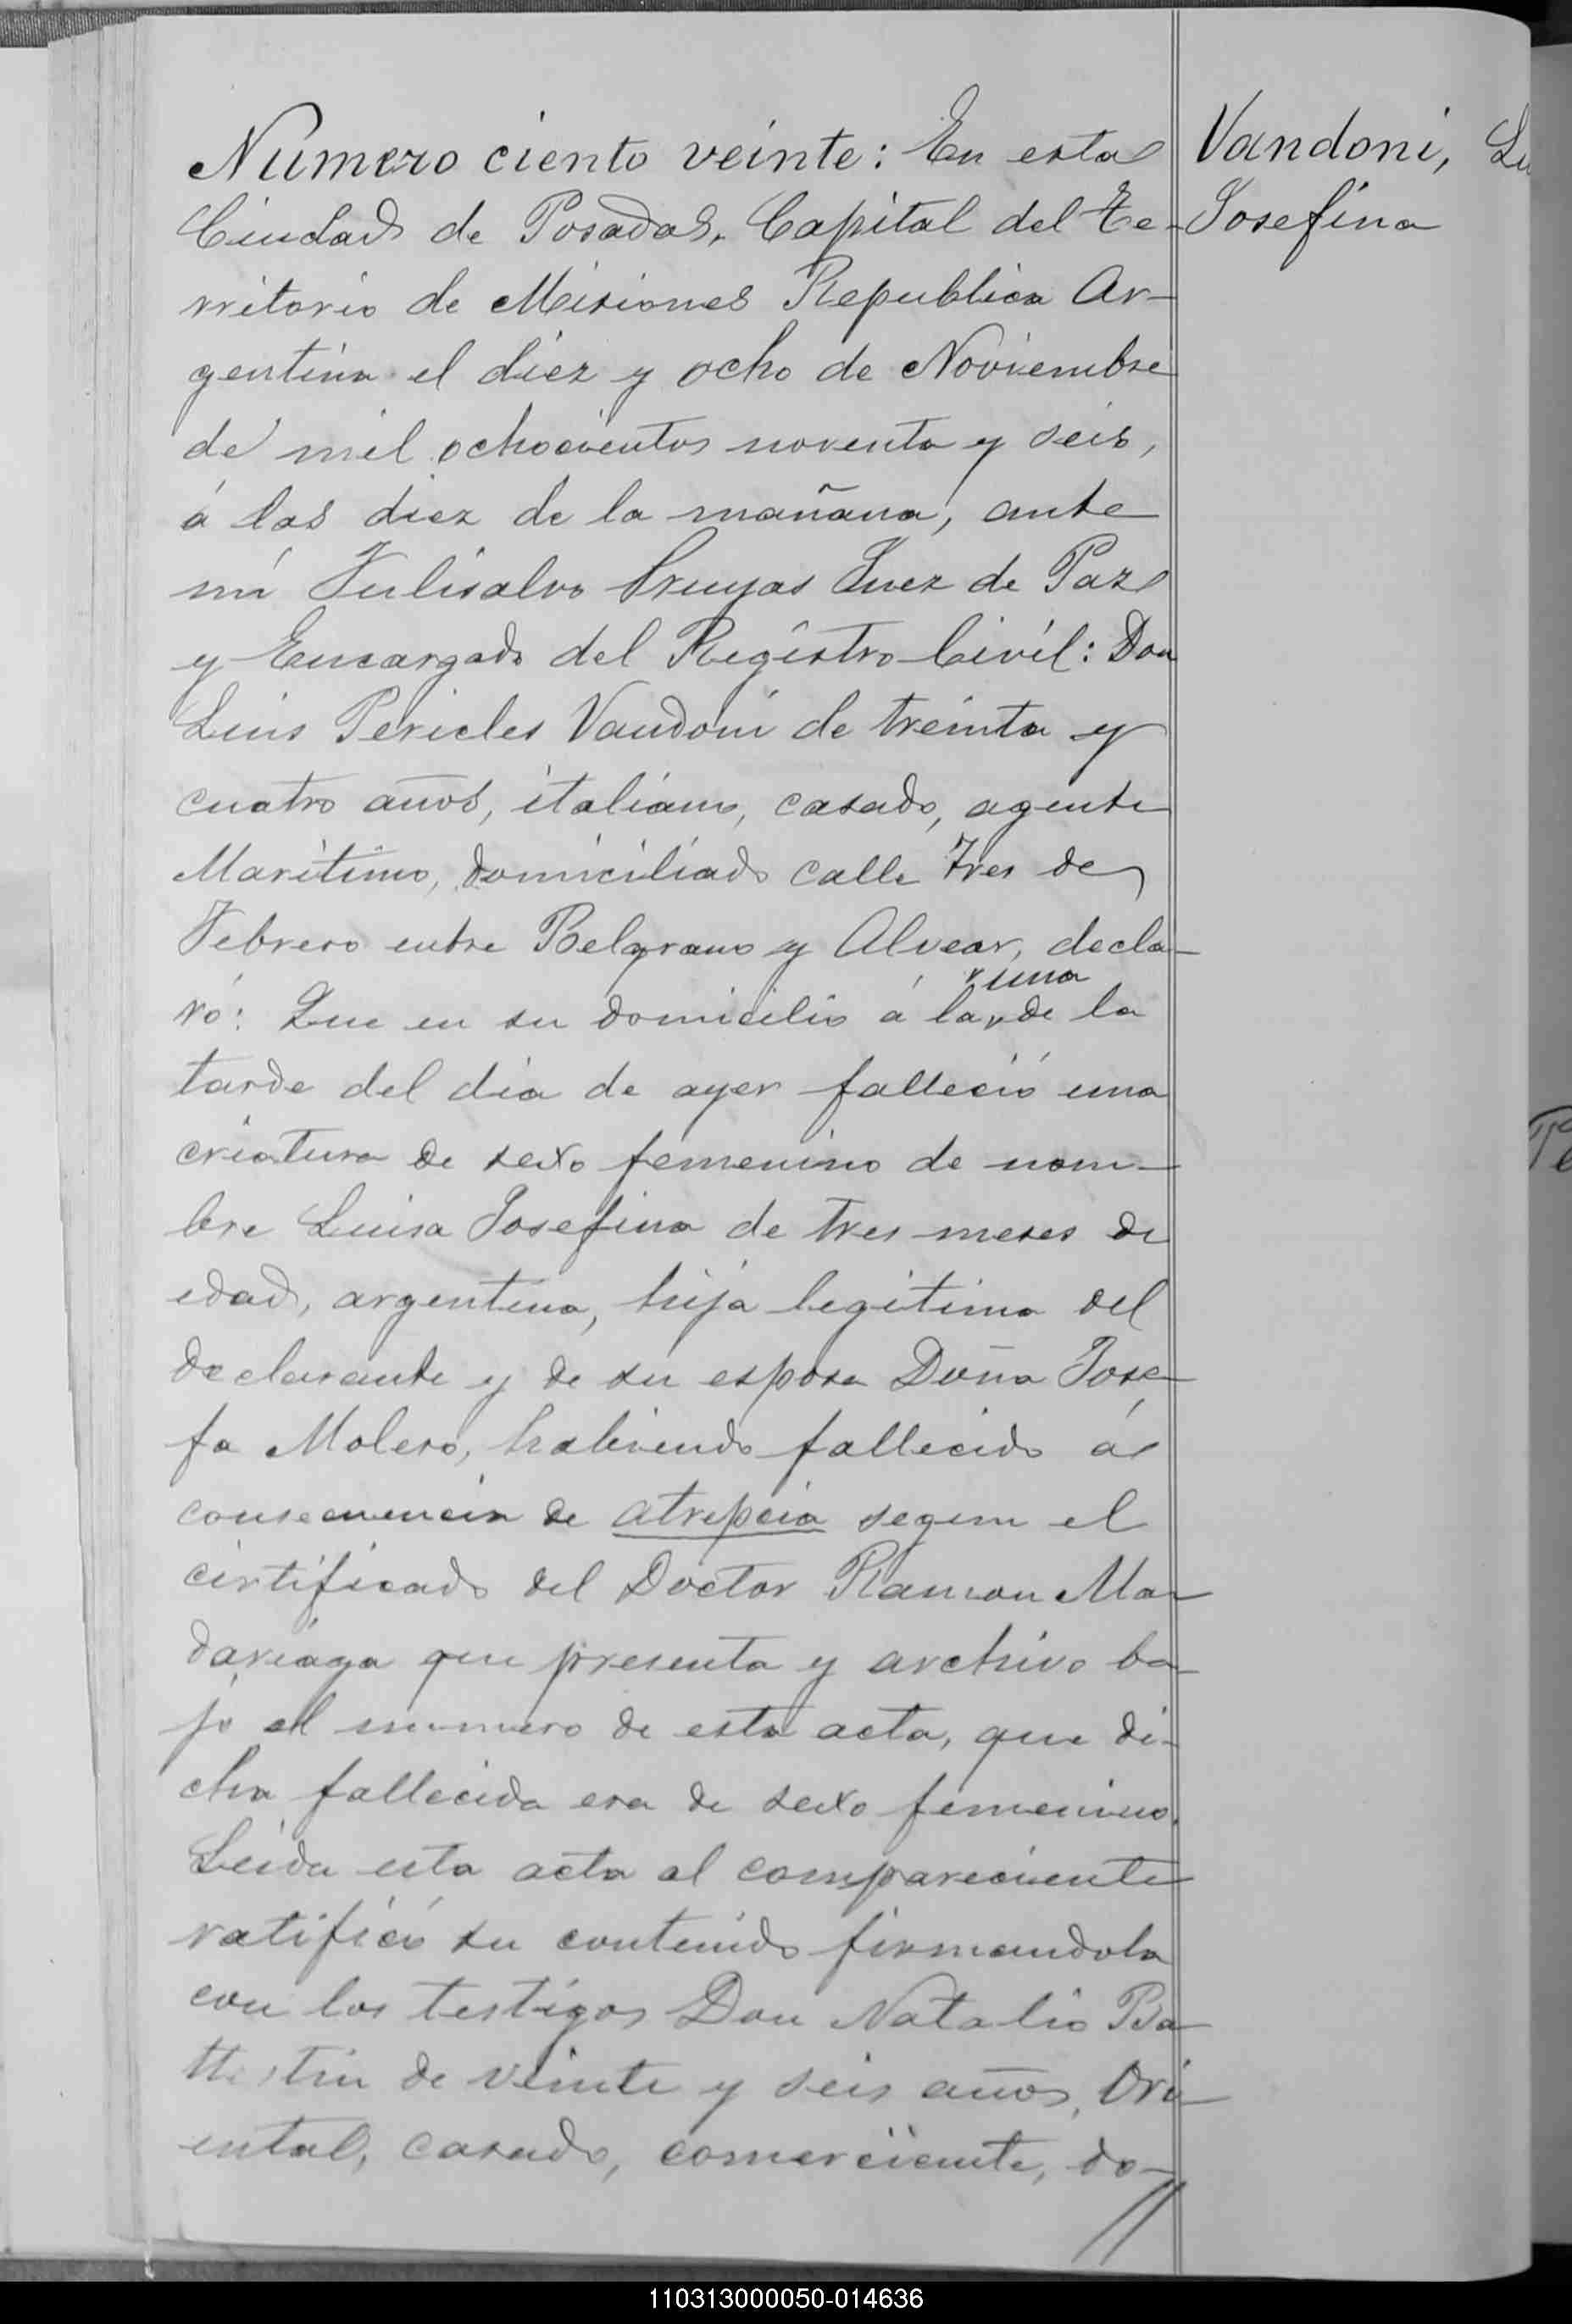 Numero ciento veinte: En esta
Ciudad de Posadas, Capital del Te-
rritorio de Misiones Republica Ar-
gentina el diez y ocho de Noviembre
de mil ochocientos noventa y seis,
á las diez de la mañana, ante
mi Fulisalvo Pruyas Juez de Paz
y Encargado del Registro Civil: Don
Luis Pericles Vandoni de treinta y
cuatro años, italiano, casado, agente
Maritimo, domiciliado calle Tres de
Febrero entre Belgrano y Alvear, decla-
ró: Que en su domicilio á la una de la
tarde del dia de ayer falleció una
criatura de sexo femenino de nom-
bre Luisa Josefina de tres meses de
edad, argentina, hija legitima del
declarante y de su esposa Doña Jose-
fa Molero, habiendo fallecido á
consecuencia de atrepcia segun el
certificado del Doctor Ramon Ma-
dariaga que presenta y archivo ba-
jo el numero de esta acta, que di-
cha fallecida era de sexo femenino.
Leida esta acta al compareciente
ratificó su contenido firmandola
con los testigos Don Natalio Ba-
ttistin de veinte y seis años, Ori-
ental, casado, comerciante, do-
Vandoni, Lu
Josefina
110313000050-014636